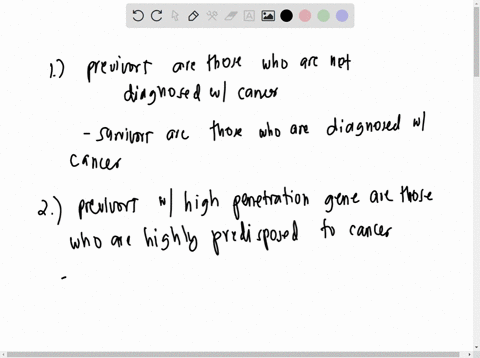 1.) previvors are those who are not
diagnosed w/ cancer
- survivors are those who are diagnosed w/
cancer
2.) previvors w/ high penetration gene are those
who are highly predisposed to cancer
-